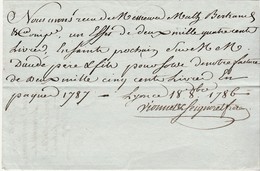 Nous avons reçu de Messieurs Meuth Bertrand
& Compe, un Effet de deux mille quatre cent
Livres, En foire prochain Sur M M
Daude pere & fils pour solde de notre facture
de deux mille cinq cent Livres en
payer 1787 — Lyon ce 18 8bre 1786
Vionnet & frere